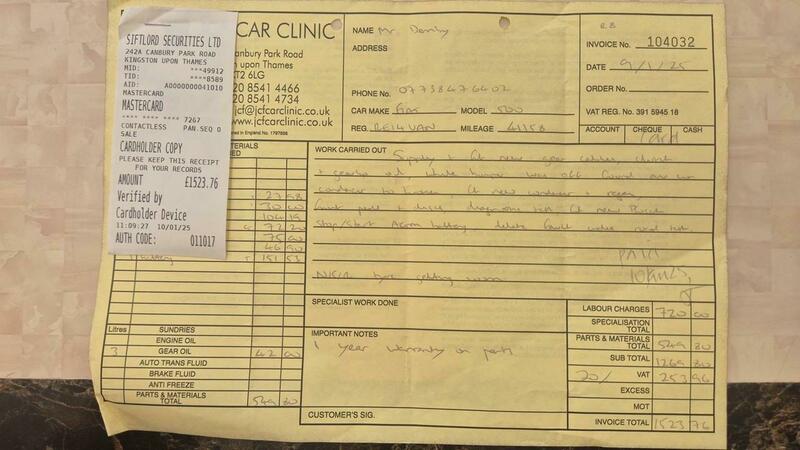 SIFTLORD SECURITIES LTD
242A CANBURY PARK ROAD
KINGSTON UPON THAMES
MID: ***49912
TID: ****8589
AID: A0000000041010
MASTERCARD
MASTERCARD
**** **** **** 7267
CONTACTLESS PAN.SEQ 0
SALE
CARDHOLDER COPY
PLEASE KEEP THIS RECEIPT
FOR YOUR RECORDS
AMOUNT £1523.76
Verified by
Cardholder Device
11:09:27 10/01/25
AUTH CODE: 011017
CAR CLINIC
Canbury Park Road
upon Thames
KT2 6LG
20 8541 4466
20 8541 4734
jcf@jcfcarclinic.co.uk
www.jcfcarclinic.co.uk
NAME Mr
ADDRESS
PHONE No. 07738476402
CAR MAKE MODEL 500
REG. RE14VAN MILEAGE 41158
INVOICE No. 104032
DATE 9/1/25
ORDER No.
VAT REG. No. 391 5945 18
ACCOUNT CHEQUE CASH
Card
MATERIALS TOTALS
27 98
30 00
104 19
72 20
75 00
46 90
1 Battery 151 53
WORK CARRIED OUT Supply + fit new gear cables,
+ gearbox out, while bumper was off found
condenser to fit new condenser + regas
diagnose fit new
Stop/Start battery, delete fault codes road test
PAID
10/01/25
N/S/R tyre getting worn
SPECIALIST WORK DONE
IMPORTANT NOTES
1 year warranty on parts
CUSTOMER'S SIG.
Litres SUNDRIES
ENGINE OIL
3 GEAR OIL 42 00
AUTO TRANS FLUID
BRAKE FLUID
ANTI FREEZE
PARTS & MATERIALS TOTAL 549 80
LABOUR CHARGES 720 00
SPECIALISATION TOTAL
PARTS & MATERIALS TOTAL 549 80
SUB TOTAL 1269 80
20/ VAT 253 96
EXCESS
MOT
INVOICE TOTAL 1523 76